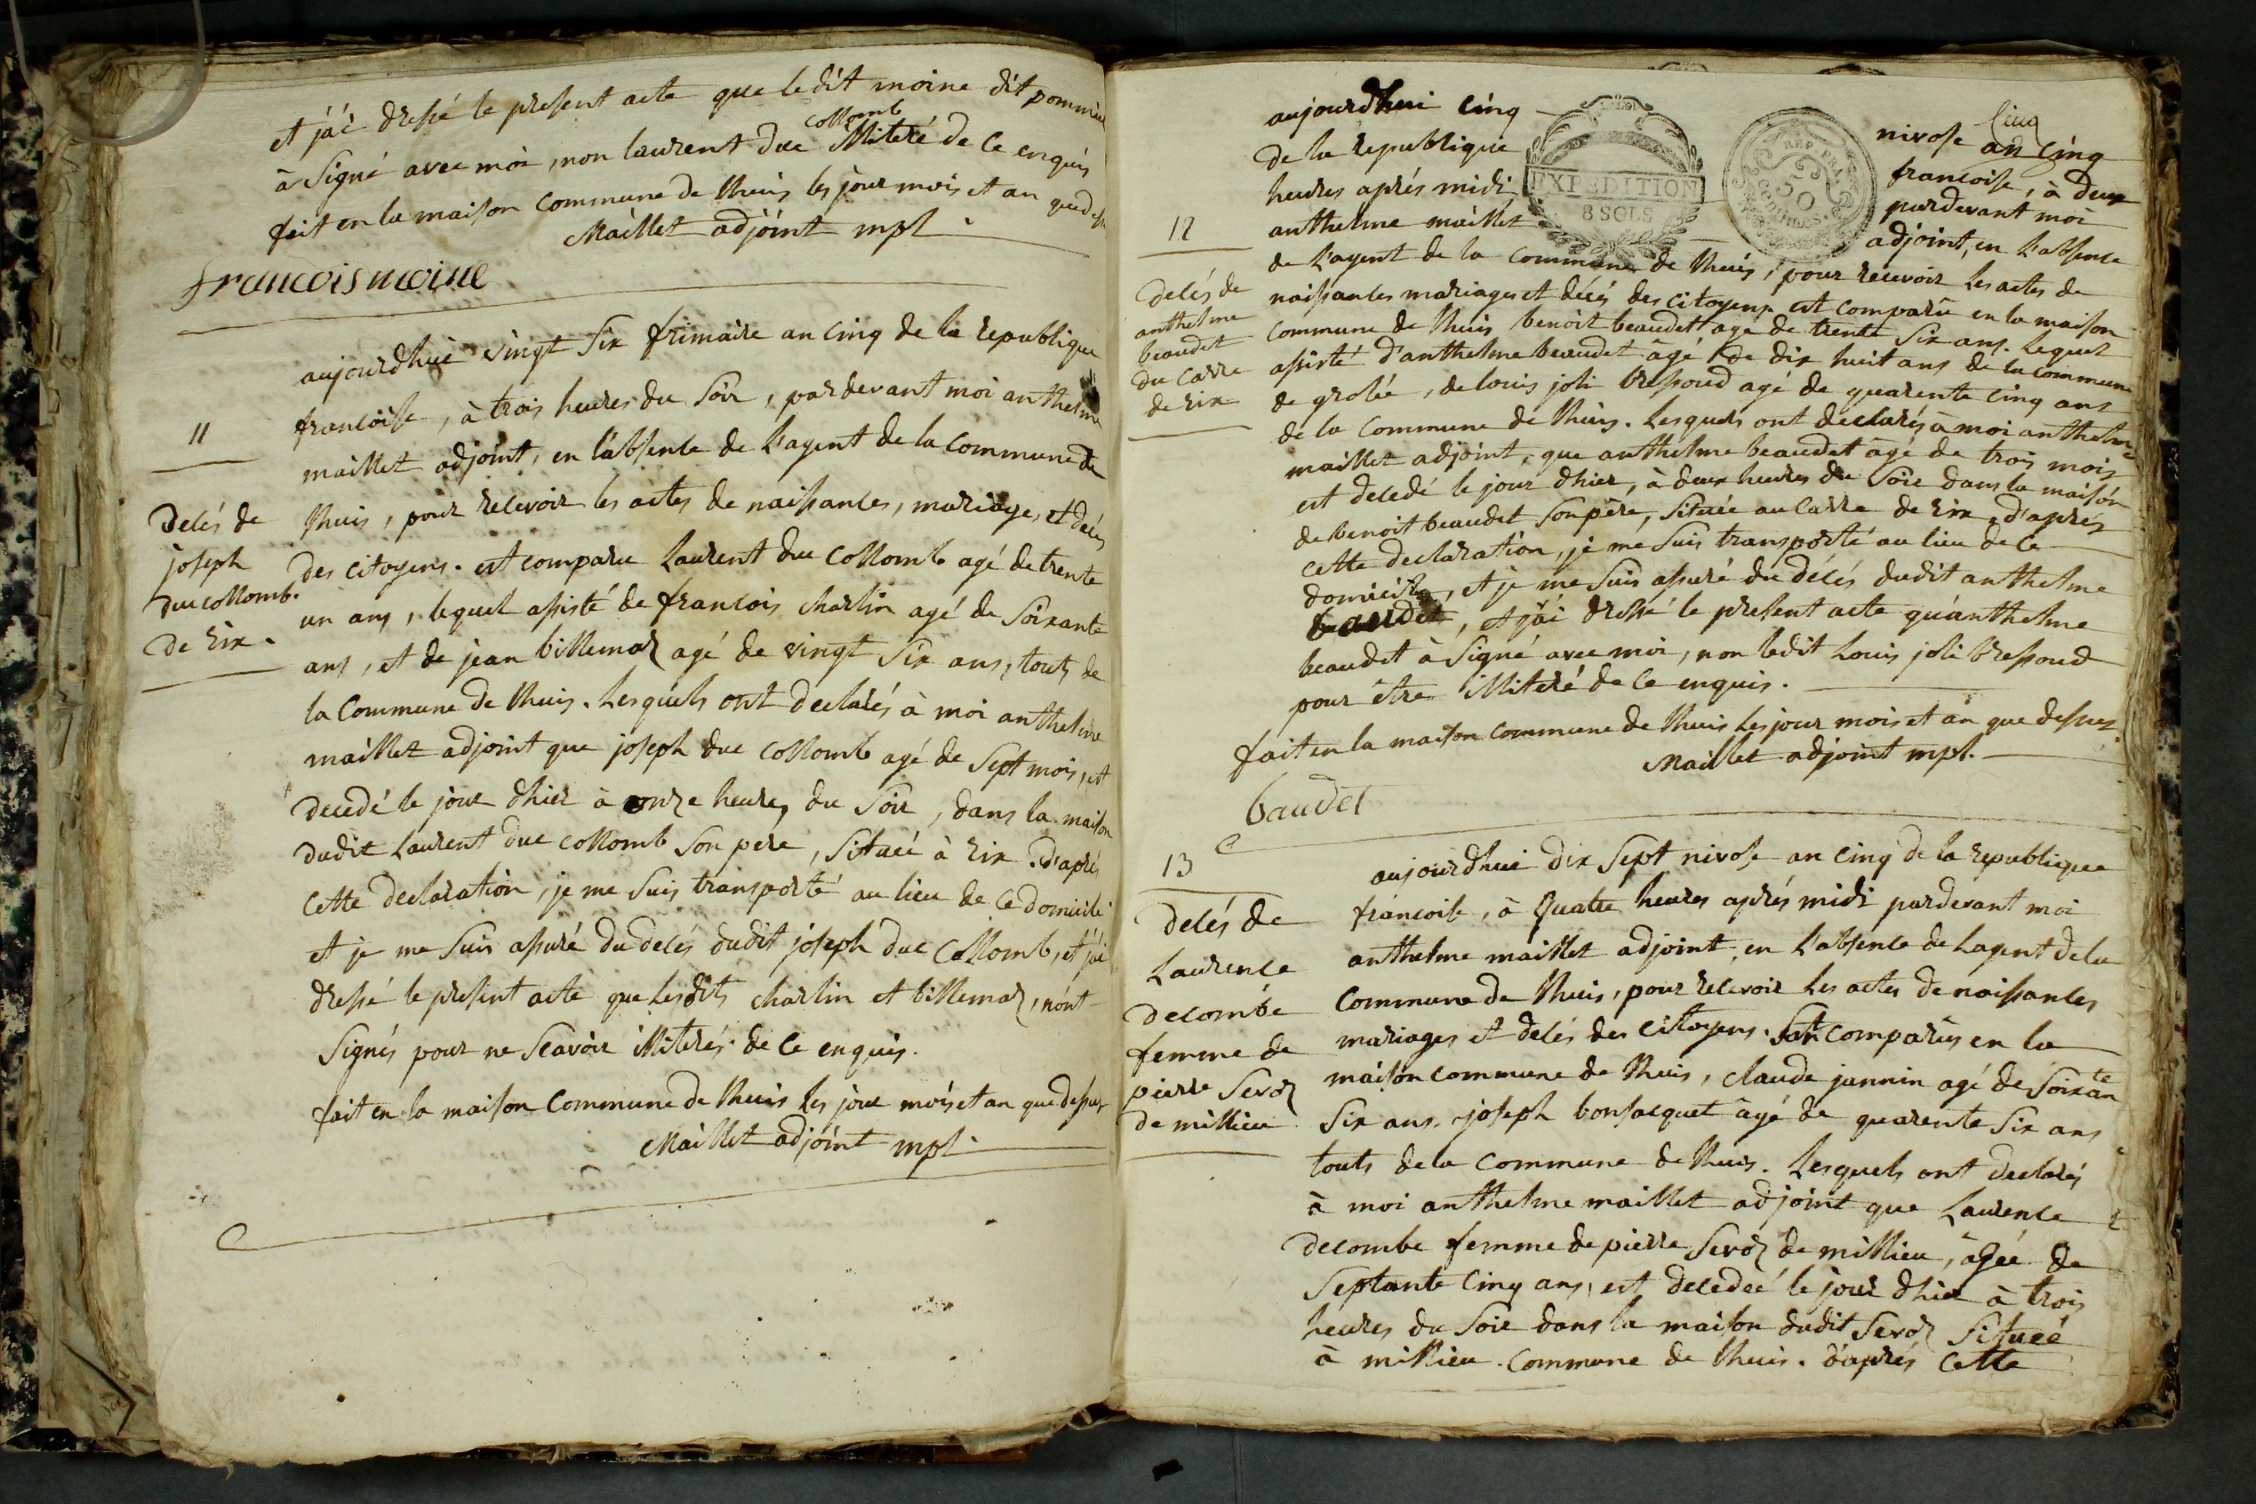 et jai dressé le present acte que ledit moine dit pommier
collomb
à signé avec moi, non laurent duc illiteré de ce enquis
fait en la maison commune de thuis les jour mois et an que dessus
Maillet adjoint mpl.
francois moine
11
Delés de
joseph
duc collomb.
de rix.
aujourdhui vingt six frimaire an cinq de la republique
francoisse, à trois heures du soir, pardevant moi anthelme
maillet adjoint, en l'absence de l'agent de la commune de
thuis, pour recevoir les actes de naissances, mariages, et décès
des citoyens. est comparu laurent duc collomb agé de trente
un ans, lequel assisté de francois charlin agé de soixante
ans, et de jean billemaz agé de vingt six ans, touts de
la commune de thuis. Lesquels ont declarés à moi anthelme
maillet adjoint que joseph duc collomb agé de sept mois, est
decedé le jour dhier à onze heures du soir, dans la maison
dudit Laurent duc collomb son pere, situeé à rix. d'après
cette declaration, je me suis transporté au lieu de ce domicile
et je me suis assuré du delés dudit joseph duc collomb, et j'ai
dressé le present acte que lesdits charlin et billemaz, n'ont
signés pour ne scavoir illiterés de ce enquis.
fait en la maison commune de thuis les jour mois et an que dessus
Maillet adjoint mpl.
12
Delés de
anthelme
beaudet
du carre
de rix
aujourdhui cinq nivose cinq an cinq
de la republique francoise, à deux
heures aprés midi pardevant moi
anthelme maillet adjoint, en l'absence
EXPEDITION
8 SOLS
REP. FRA.
50
CENTIMES
de l'agent de la commune de thuis, pour recevoir les actes de
naissances mariages et décés des citoyens. est comparu en la maison
commune de thuis benoit beaudet age de trente six ans. lequel
assisté d'anthelme beaudet âgé de dix huit ans de la commune
de groleé, de louis joli bressoud agé de quarente cinq ans
de la commune de thuis. Lesquels ont declarés à moi anthelme
maillet adjoint, que anthelme beaudet âgé de trois mois
est decedé le jour dhier, à deux heures du soir dans la maison
de benoit beaudet son père, situeé au carre de rix. d'aprés
cette declaration, je me suis transporté au lieu de ce
domicile, et je me suis assuré du délés dudit anthelme
beaudet, et j'ai dressé le present acte qu'anthelme
beaudet à signé avec moi, non ledit Louis joli bressoud
pour être illiteré de ce enquis.
fait en la maison commune de thuis les jour mois et an que dessus.
Maillet adjoint mpl.
baudet
13
Delés de
Laurence
decombe
femme de
pierre Seroz
de millieu
aujourdhui dix sept nivose an cinq de la republique
francoise, à quatre heures aprés midi pardevant moi
anthelme maillet adjoint, en l'absence de Lagent de la
commune de thuis, pour recevoir les actes de naissances
mariages et delés des citoyens. sont comparus en la
maison commune de thuis, claude jannin agé de soixante
six ans. joseph bonjacquet âgé de quarente six ans
touts de la commune de thuis. Lesquels ont declarés
à moi anthelme maillet adjoint que Laurence
decombe femme de pierre Seroz de millieu, âgée de
septante cinq ans, est decedeé le jour dhier à trois
heures du soir dans la maison dudit Seroz situeé
à millieu. commune de thuis. d'aprés cette